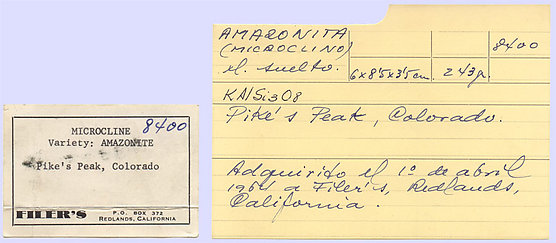 MICROCLINE 8400
Variety: AMAZONITE
Pike's Peak, Colorado
FILER'S
P.O. BOX 372
REDLANDS, CALIFORNIA
AMAZONITA
(MICROCLINO)
xl. suelto.
6x8'5x3'5 cm.
243gr.
8400
KAlSi3O8
Pike's Peak, Colorado.
Adquirito el 1º de abril
a Filer's, Redlands,
California.